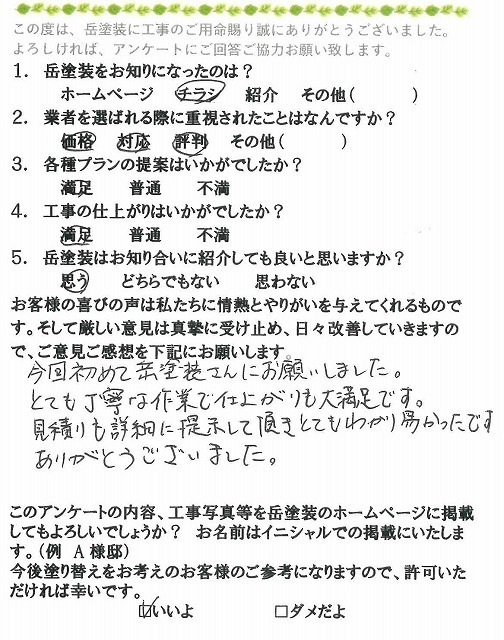 この度は、岳塗装に工事のご用命賜り誠にありがとうございました。
よろしければ、アンケートにご回答ご協力お願い致します。
1. 岳塗装をお知りになったのは？
ホームページ　チラシ　紹介　その他(　　　　)
2. 業者を選ばれる際に重視されたことはなんですか？
価格　対応　評判　その他(　　　　)
3. 各種プランの提案はいかがでしたか？
満足　普通　不満
4. 工事の仕上がりはいかがでしたか？
満足　普通　不満
5. 岳塗装はお知り合いに紹介しても良いと思いますか？
思う　どちらでもない　思わない
お客様の喜びの声は私たちに情熱とやりがいを与えてくれるもので
す。そして厳しい意見は真摯に受け止め、日々改善していきますの
で、ご意見ご感想を下記にお願いします。
今回初めて岳塗装さんにお願いしました。
とても丁寧な作業で仕上がりも大満足です。
見積りも詳細に提示して頂きとてもわかり易かったです
ありがとうございました。
このアンケートの内容、工事写真等を岳塗装のホームページに掲載
してもよろしいでしょうか？　お名前はイニシャルでの掲載にいたしま
す。(例　A 様邸)
今後塗り替えをお考えのお客様のご参考になりますので、許可いた
だければ幸いです。
☑いいよ　□ダメだよ